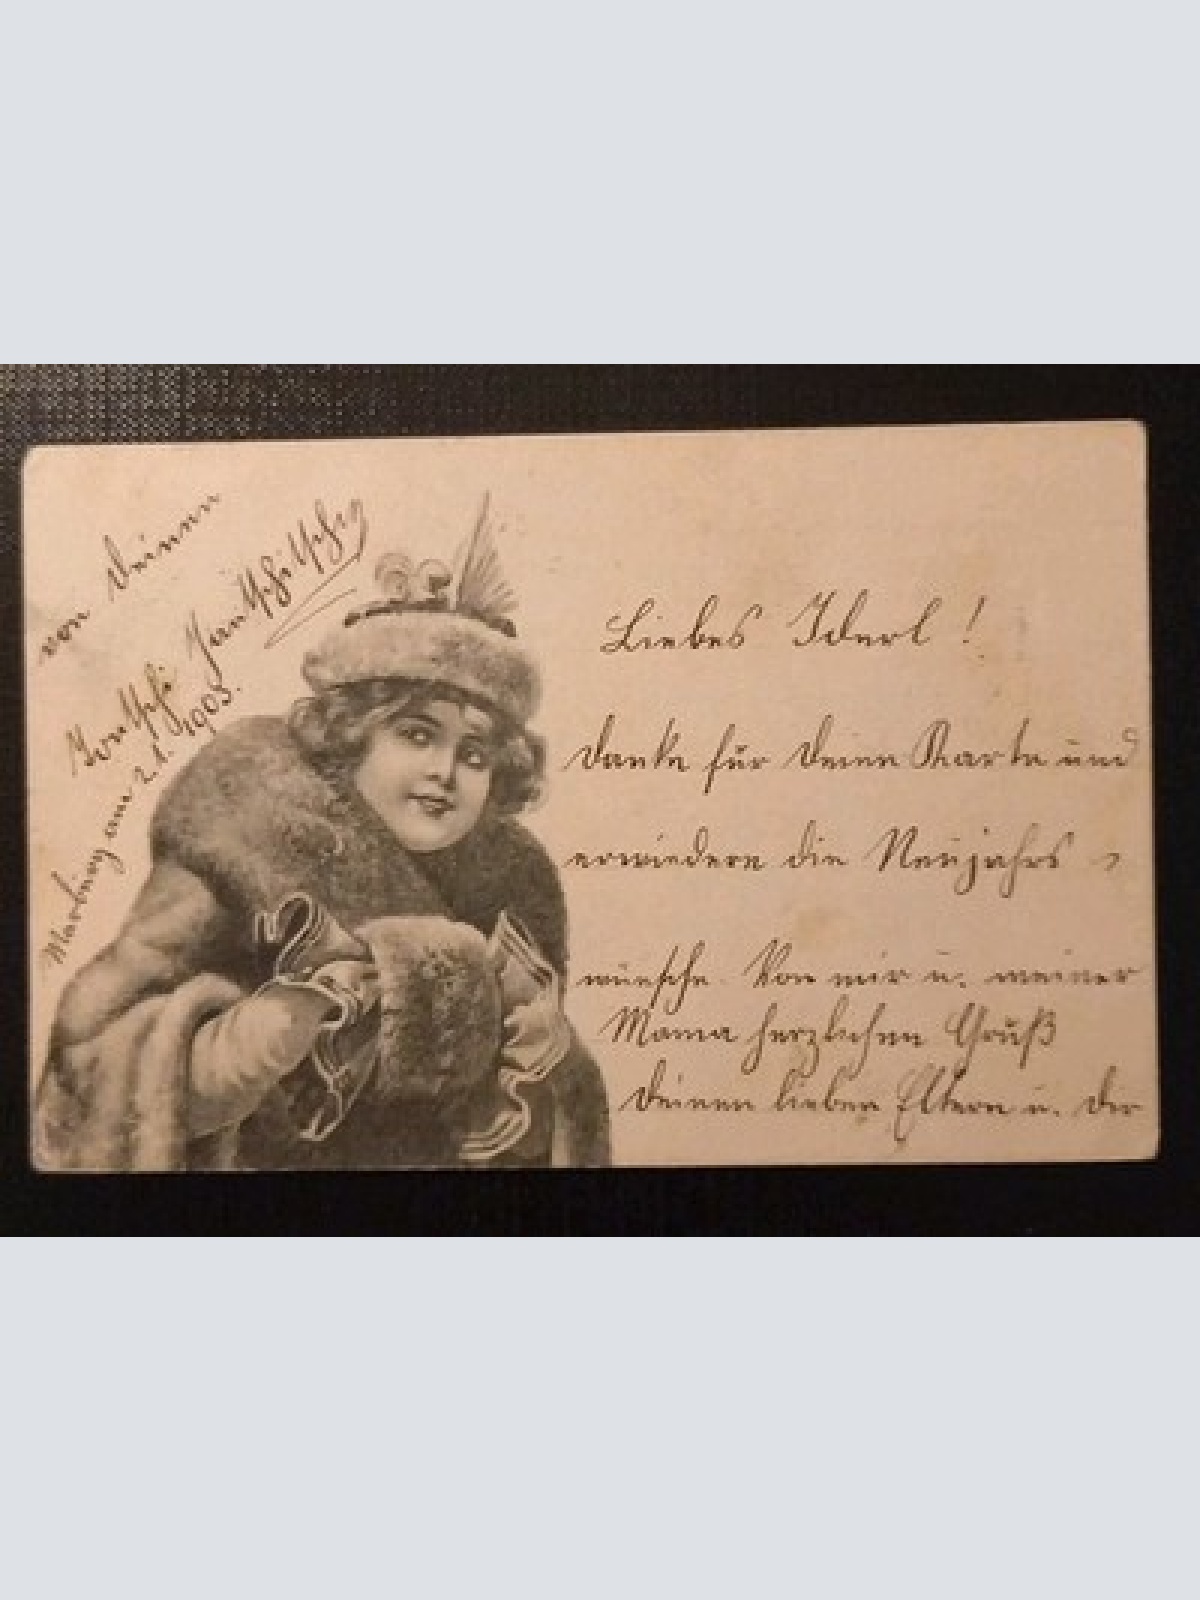 Liebes Iderl!
danke für Deine Karte und
erwiedere die Neujahrs-
wünsche. Von mir u. meiner
Mama herzlichen Gruß
Deinen lieben Eltern u. Dir
von Deinem
Marburg am 2.1. 1903.